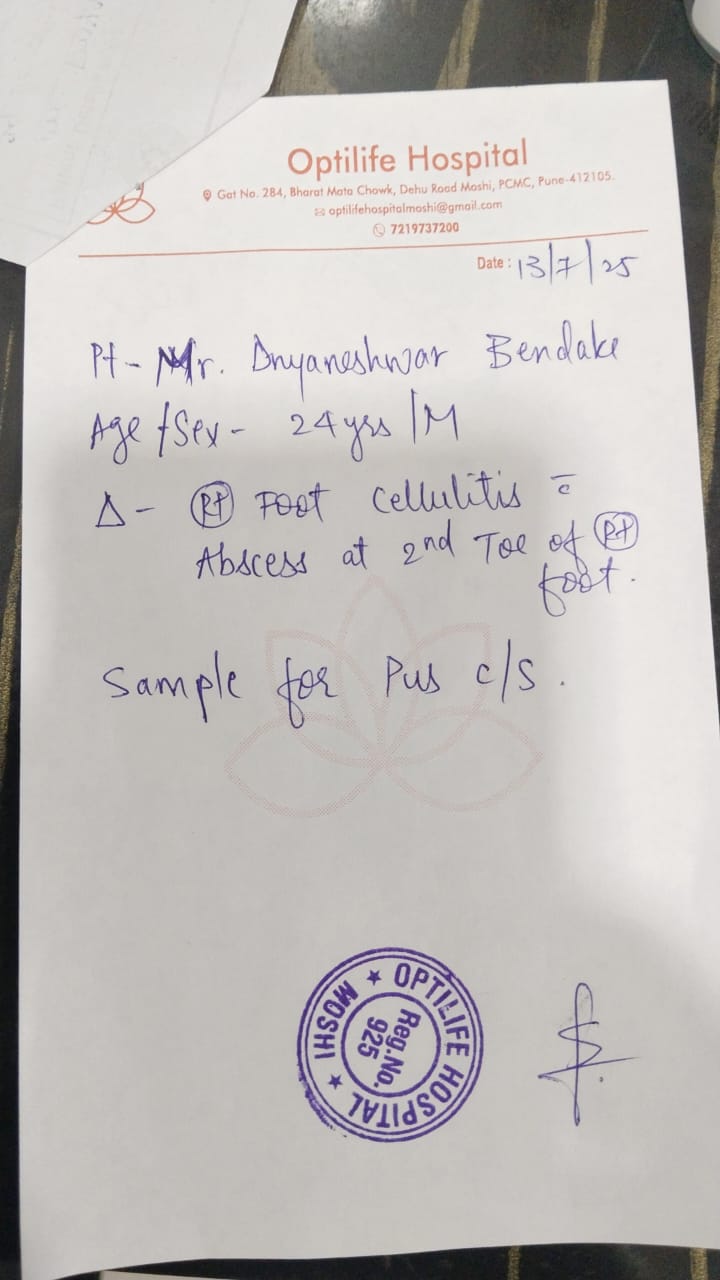 Optilife Hospital
Gat No. 284, Bharat Mata Chowk, Dehu Road Moshi, PCMC, Pune-412105.
optilifehospitalmoshi@gmail.com
7219737200
Date : 13/7/25
Pt - Mr. Dnyaneshwar Bendake
Age / Sex - 24 yrs / M
Δ - Rt Foot cellulitis c̄
Abscess at 2nd Toe of Rt
foot.
Sample for Pus c/s.
OPTILIFE HOSPITAL ★ MOSHI ★
Reg.No.
925